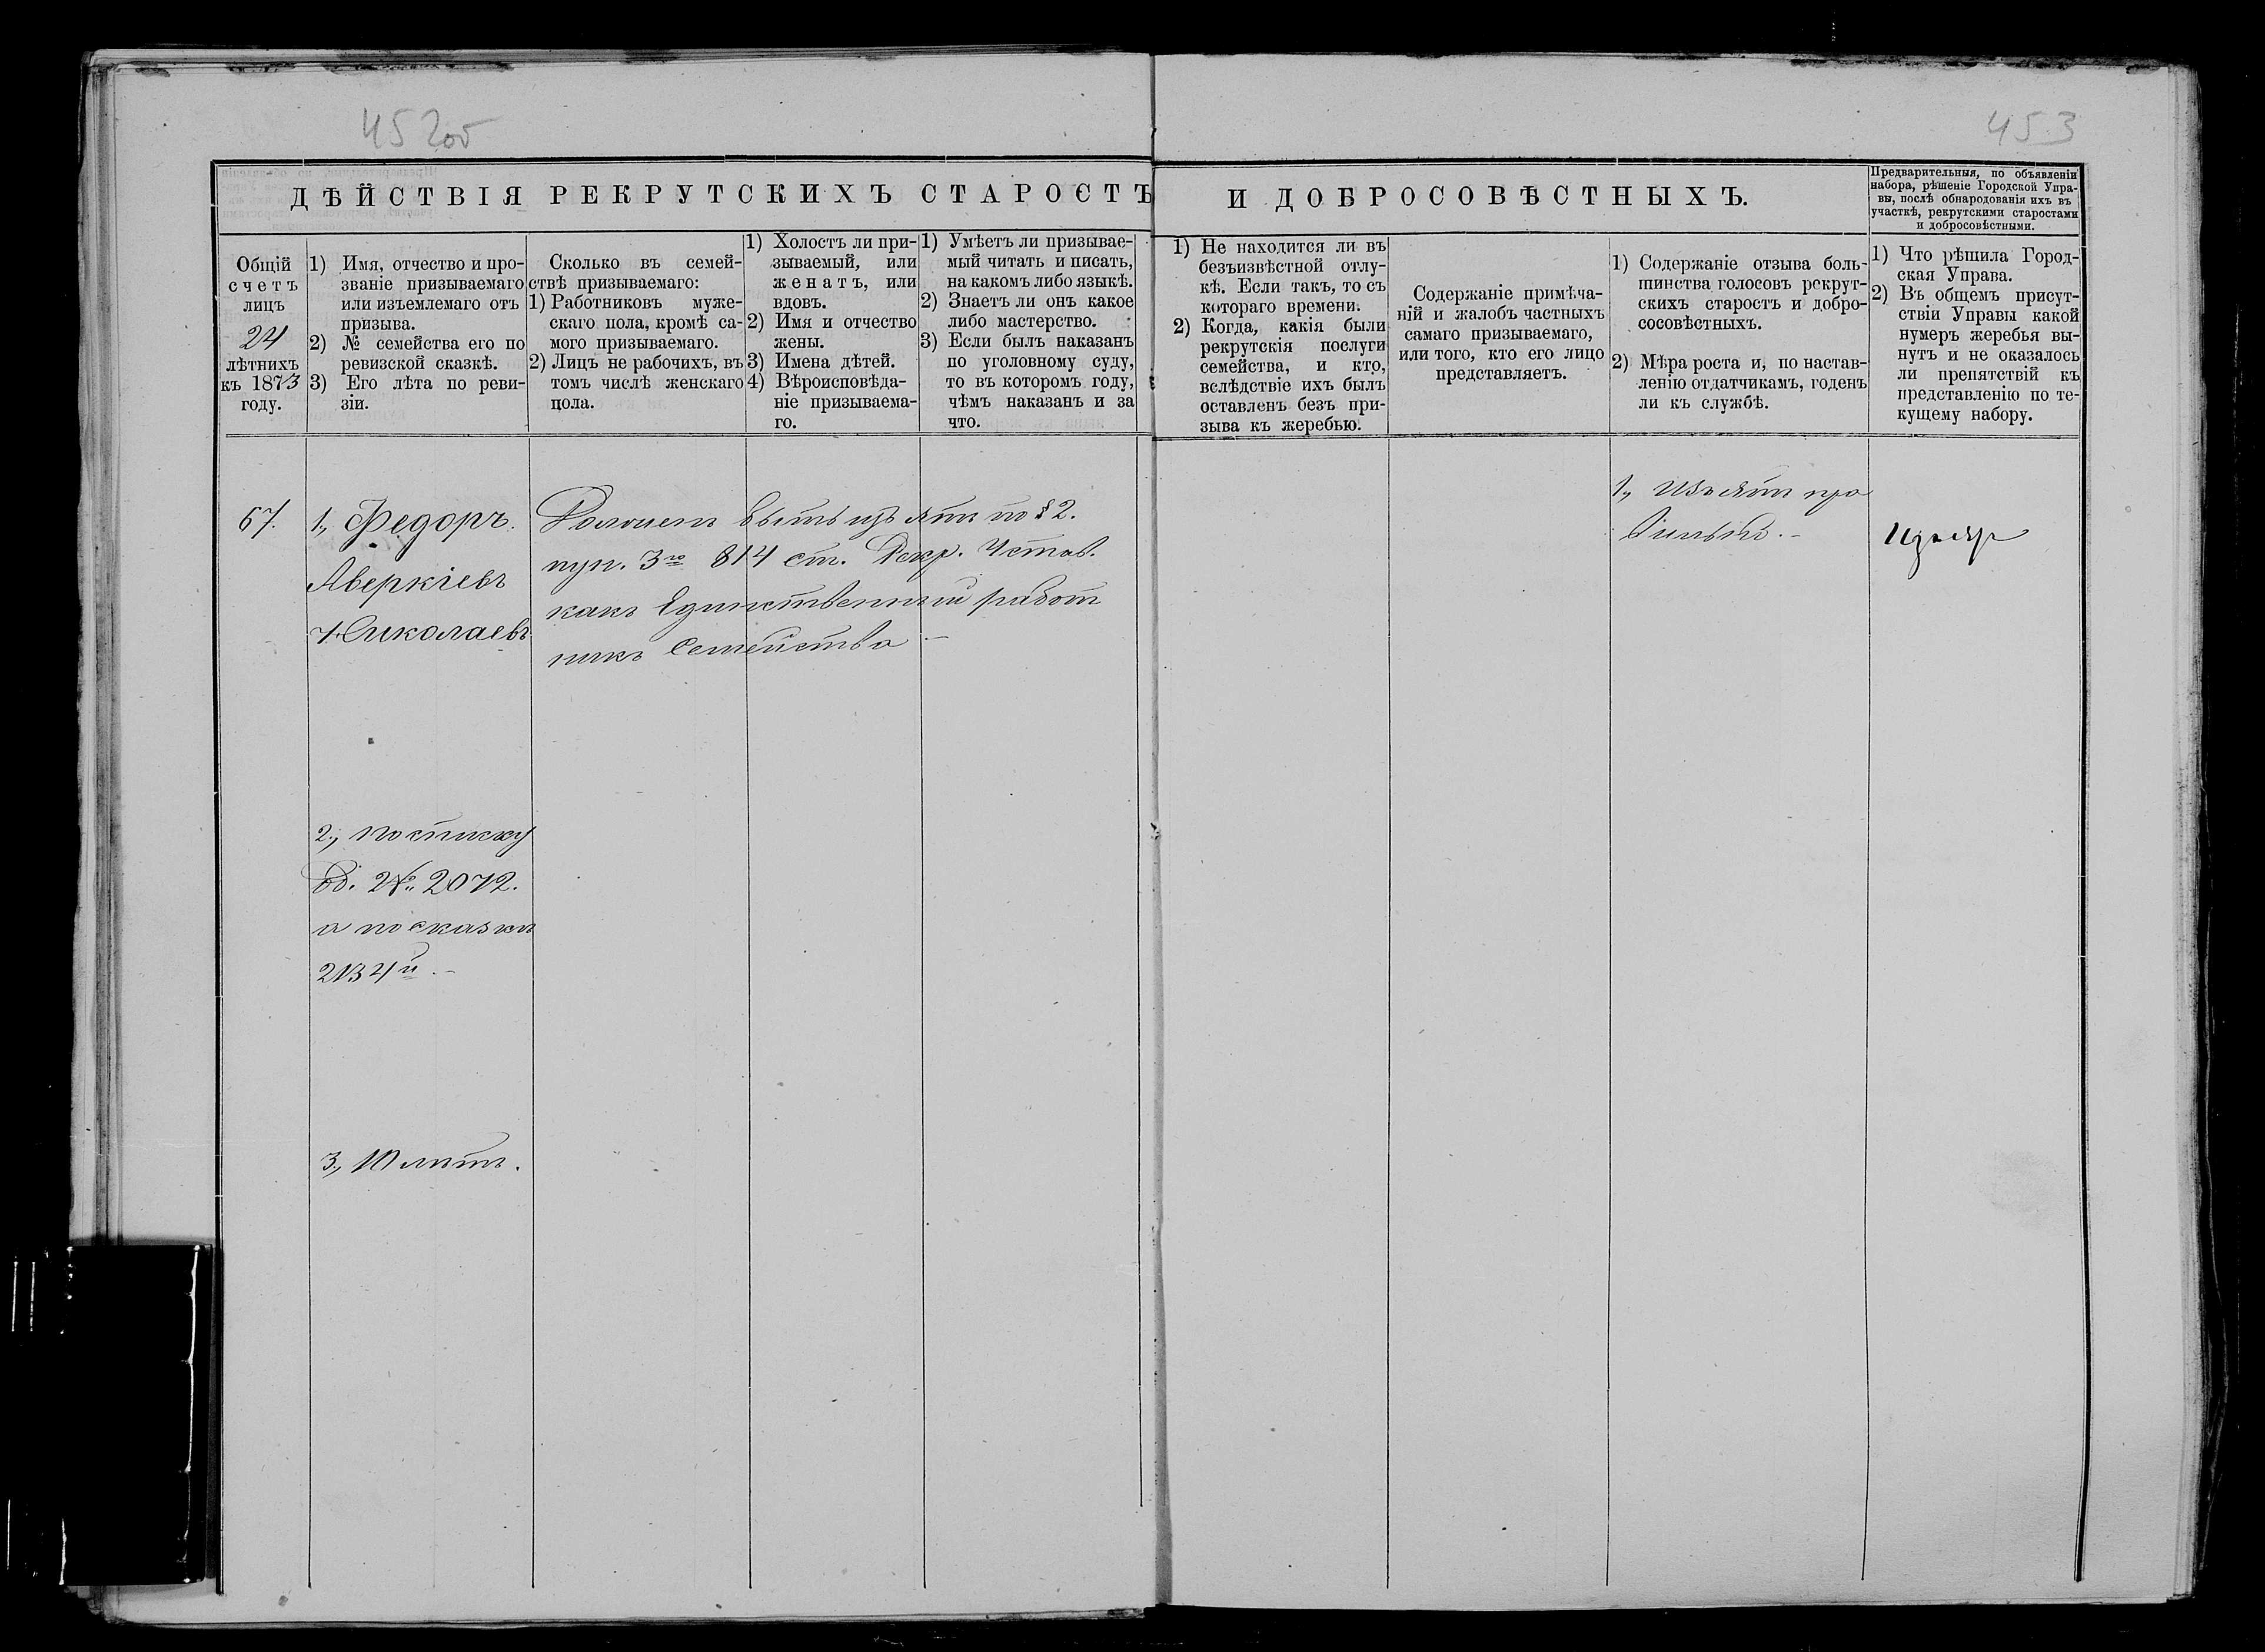 452об
453
ДѢЙСТВІЯ РЕКРУТСКИХЪ СТАРОСТЪ
И ДОБРОСОВѢСТНЫХЪ.
Предварительныя, по объявленіи
набора, рѣшеніе Городской Упра-
вы, послѣ обнародованія ихъ въ
участкѣ, рекрутскими старостами
и добросовѣстными.
Общій
счетъ
лицъ
24
лѣтнихъ
къ 1873
году.
1) Имя, отчество и про-
званіе призываемаго
или изъемлемаго отъ
призыва.
2) № семейства его по
ревизской сказкѣ.
3) Его лѣта по реви-
зіи.
Сколько въ семей-
ствѣ призываемаго:
1) Работниковъ муже-
скаго пола, кромѣ са-
мого призываемаго.
2) Лицъ не рабочихъ, въ
томъ числѣ женскаго
пола.
1) Холостъ ли при-
зываемый, или
женатъ, или
вдовъ.
2) Имя и отчество
жены.
3) Имена дѣтей.
4) Вѣроисповѣда-
ніе призываема-
го.
1) Умѣетъ ли призывае-
мый читать и писать,
на какомъ либо языкѣ.
2) Знаетъ ли онъ какое
либо мастерство.
3) Если былъ наказанъ
по уголовному суду,
то въ которомъ году,
чѣмъ наказанъ и за
что.
1) Не находится ли въ
безъизвѣстной отлу-
кѣ. Если такъ, то съ
котораго времени.
2) Когда, какія были
рекрутскія послуги
семейства, и кто,
вслѣдствіе ихъ былъ
оставленъ безъ при-
зыва къ жеребью.
Содержаніе примѣча-
ній и жалобъ частныхъ
самаго призываемаго,
или того, кто его лицо
представляетъ.
1) Содержаніе отзыва боль-
шинства голосовъ рекрут-
скихъ старостъ и добро-
совѣстныхъ.
2) Мѣра роста и, по настав-
ленію отдатчикамъ, годенъ
ли къ службѣ.
1) Что рѣшила Город-
ская Управа.
2) Въ общемъ присут-
ствіи Управы какой
нумеръ жеребья вы-
нутъ и не оказалось
ли препятствій къ
представленію по те-
кущему набору.
67.
1, Федоръ
Аверкіевъ
Николаевъ
Долженъ быть изъятъ по § 2.
пун. 3го 814 ст. Рекр. Устав.
какъ Единственный работ
никъ Семейства
1, Изъятъ пра
вильно.
Изъят
2, по списку
№ 2072.
а по сказкѣ
2134й
3, 10 лѣтъ.